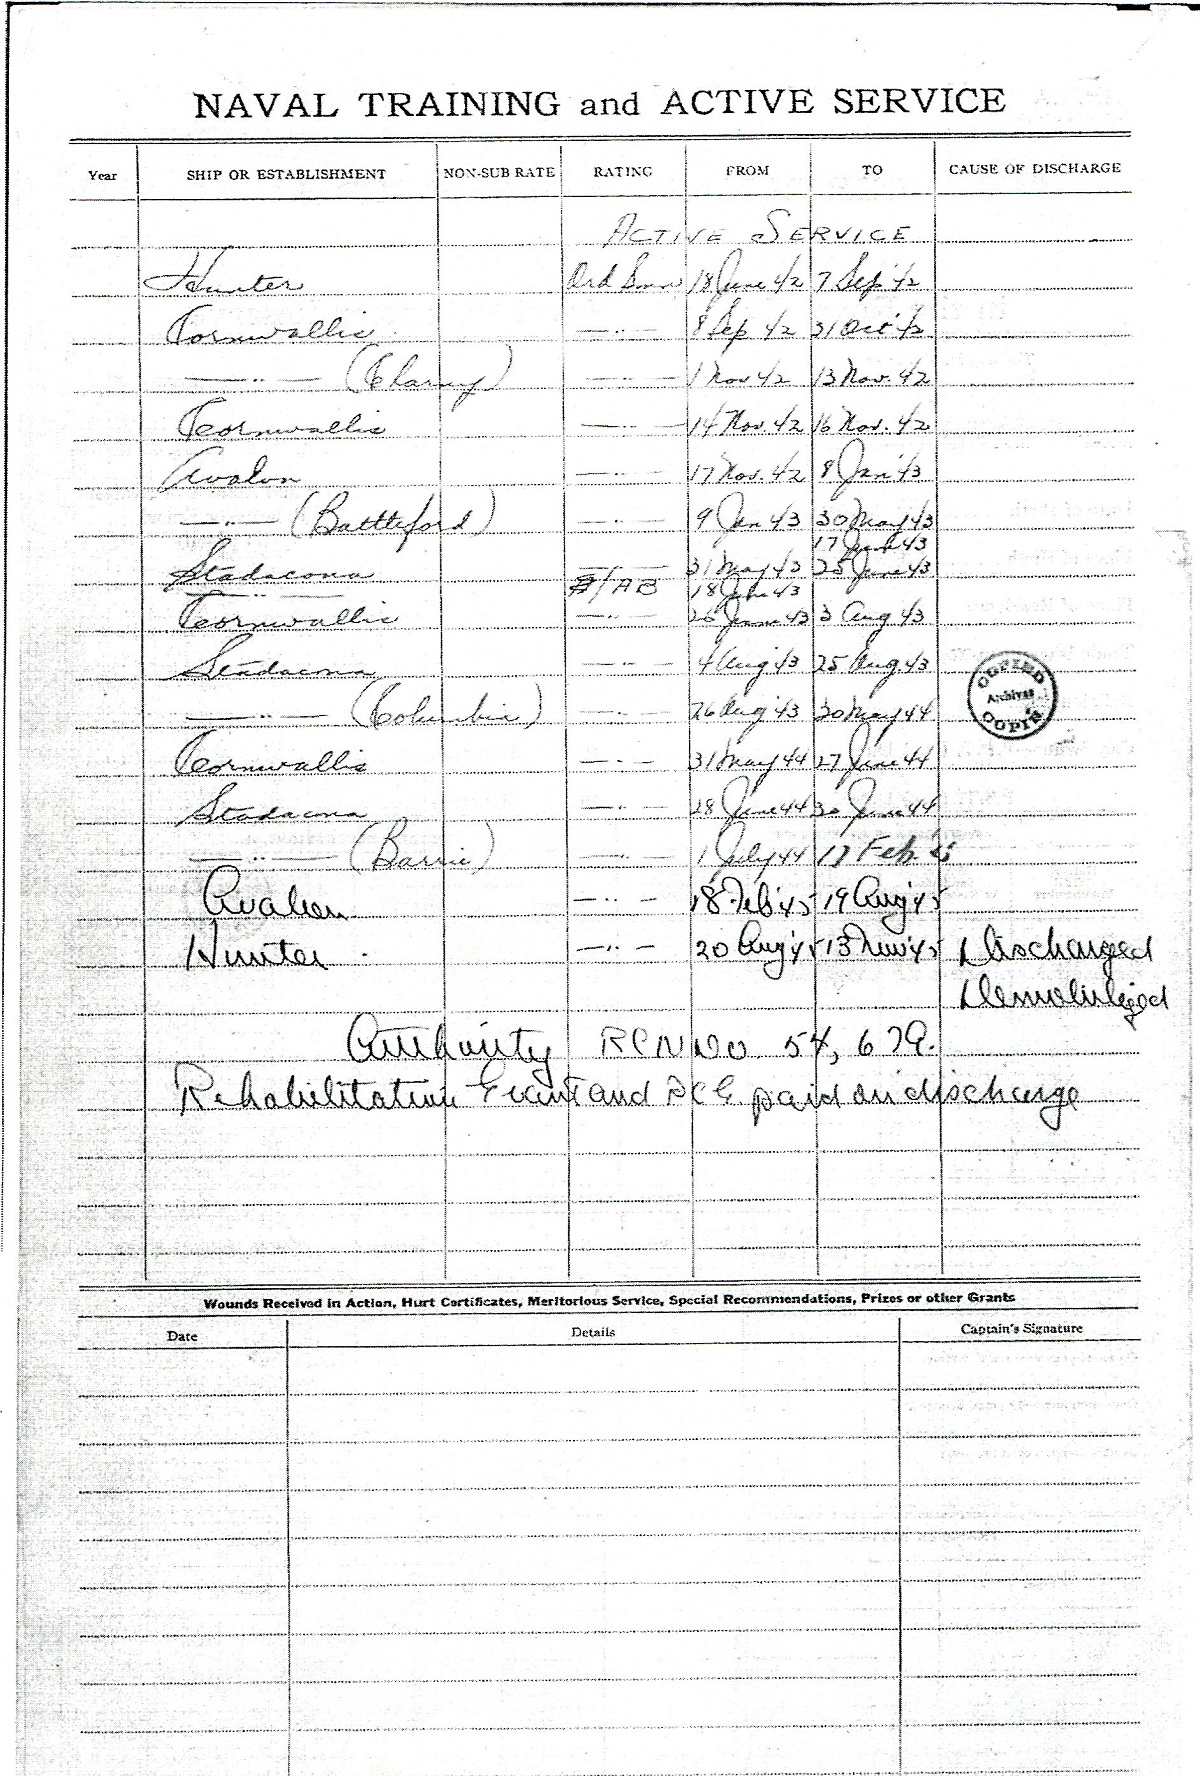 NAVAL TRAINING and ACTIVE SERVICE
Year SHIP OR ESTABLISHMENT NON-SUB RATE RATING FROM TO CAUSE OF DISCHARGE
ACTIVE SERVICE
Hunter Ord Smn 18 June 42 7 Sep 42
Cornwallis —"— 8 Sep 42 31 Oct 42
—"— (Charny) —"— 1 Nov 42 13 Nov. 42
Cornwallis —"— 14 Nov. 42 16 Nov. 42
Avalon —"— 17 Nov. 42 8 Jan 43
—"— (Battleford) —"— 9 Jan 43 30 May 43
17 June 43
Stadacona —"— 31 May 43 25 June 43
—"— /AB 18 June 43
Cornwallis —"— 26 June 43 3 Aug 43
Stadacona —"— 4 Aug 43 25 Aug. 43
—"— (Columbia) —"— 26 Aug 43 30 May 44
Cornwallis —"— 31 May 44 27 June 44
Stadacona —"— 28 June 44 30 June 44
—"— (Barrie) —"— 1 July 44 17 Feb. 45
Avalon —"— 18 Feb 45 19 Aug 45
Hunter —"— 20 Aug 45 13 Nov 45 Discharged
Demobilized
Authority RCN DO 54, 679.
Rehabilitation Grant and DCG. paid on discharge
COPIED
Archives
COPIÉ
Wounds Received in Action, Hurt Certificates, Meritorious Service, Special Recommendations, Prizes or other Grants
Date Details Captain's Signature